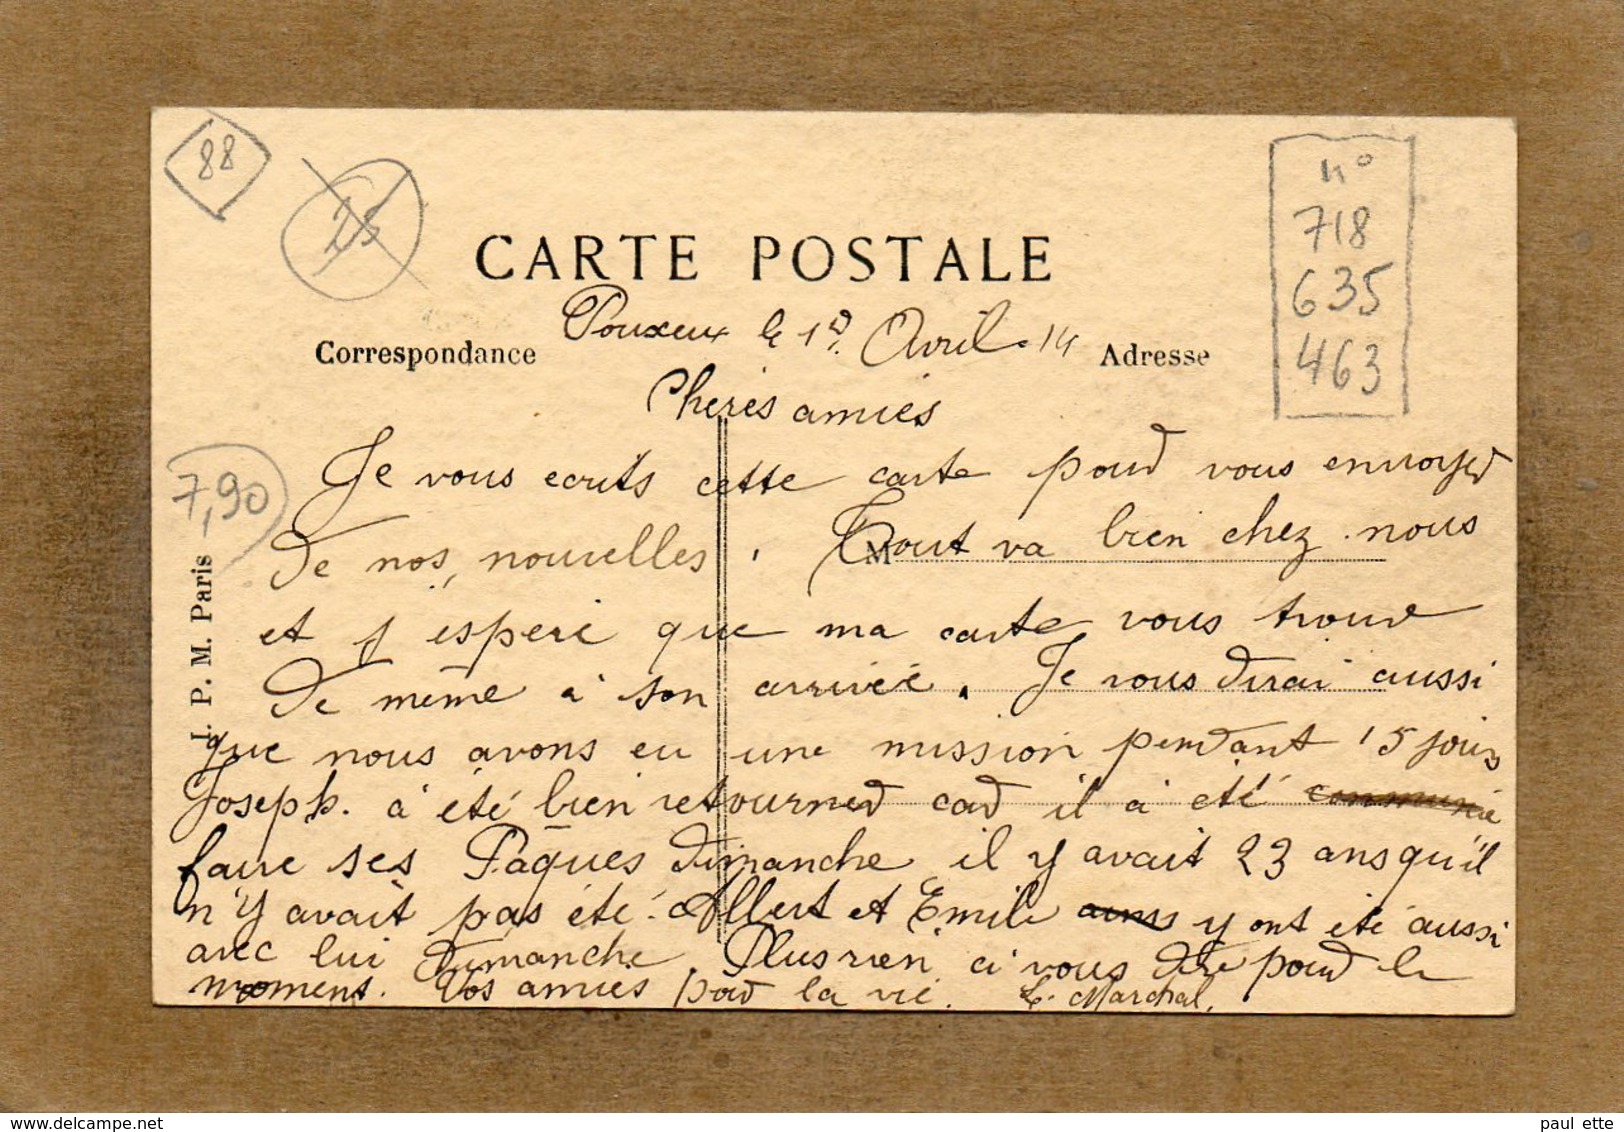 88
25
CARTE POSTALE
n°
718
635
463
Pouxeux le 1er Avril. 14
Correspondance
Adresse
Cheres amies
Je vous ecrits cette carte pour vous envoyer
7,90
de nos nouvelles. Tout va bien chez nous
M
et j'espere que ma carte vous trouve
de même à son arrivée. Je vous dirai aussi
que nous avons eu une mission pendant 15 jours
Joseph. à été bien retourner car il à été communié
faire ses Pâques dimanche il y avait 23 ans qu'il
n'y avait pas été. Albert et Emile y ont été aussi
avec lui dimanche Plus rien a vous dire pour le
moment. Vos amies pour la vie. L. Marchal.
J. P. M. Paris
delcampe.net
paul ette